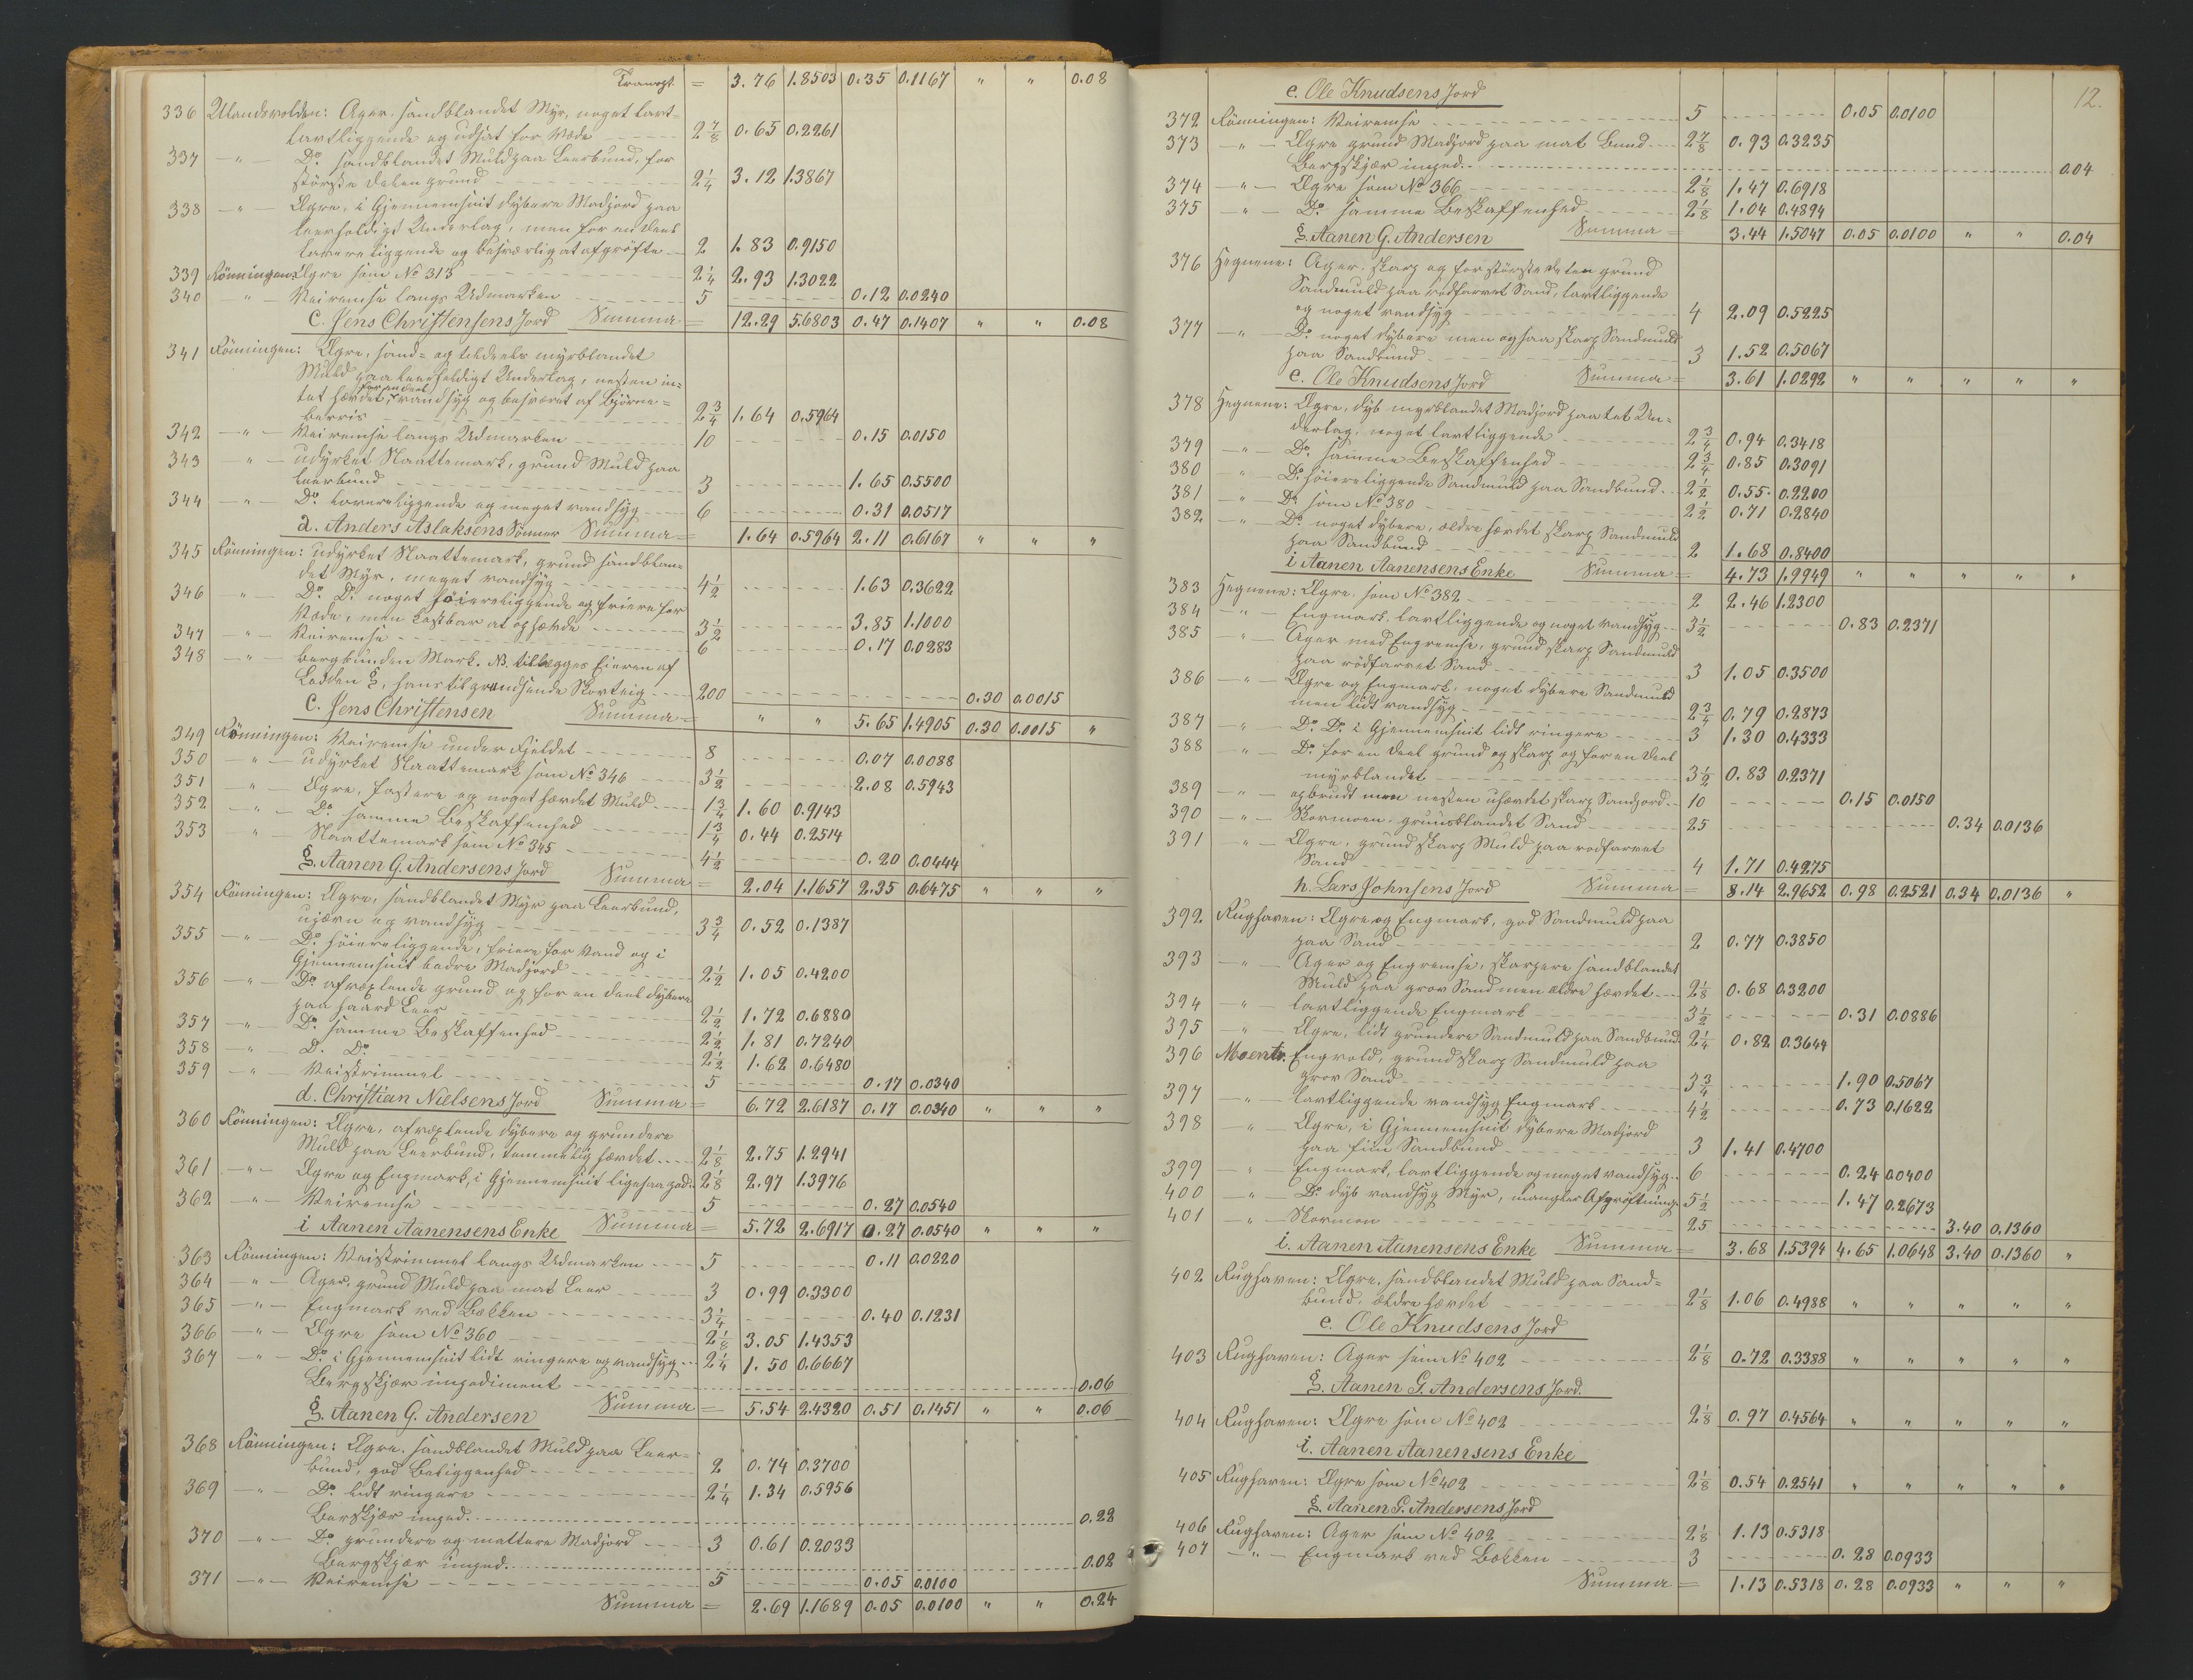 Transpt. = 3.76 1.8503 0.35 0.1167 " " 0.08
336 Ulandsvolden: Ager, sandblandet Myr, noget lavt-
lavtliggende og udsat for Væde 2 7/8 0.65 0.2261
337 " Do sandblandet Muld paa Leerbund, for
største Delen grund 2 1/4 3.12 1.3867
338 " Agre, i Gjennemsnit dybere Madjord paa
leerholdigt Underlag, men for en Deel
lavereliggende og besværlig at afgrøfte 2 1.83 0.9150
339 Rönningen: Agre som No 313 2 1/4 2.93 1.3022
340 " Veiremse langs Udmarken 5 0.12 0.0240
c. Jens Christensens Jord Summa = 12.29 5.6803 0.47 0.1407 " " 0.08
341 Rönningen: Agre, sand- og tildeels myrblandet
Muld paa leerholdigt Underlag, næsten in-
tet hævdet, for en Deel vandsyg og besværet af Bjørne-
berris 2 3/4 1.64 0.5964
342 " Veiremse langs Udmarken 10 0.15 0.0150
343 " udyrket Slaattemark, grund Muld paa
Leerbund 3 1.65 0.5500
344 " Do lavereliggende og meget vandsyg 6 0.31 0.0517
a. Anders Aslaksens Sönner Summa = 1.64 0.5964 2.11 0.6167 " " "
345 Rönningen: udyrket Slaattemark, grund sandblan-
det Myr, meget vandsyg 4 1/2 1.63 0.3622
346 " Do Do noget høiereliggende og friere for
Væde, men kostbar at ophævde 3 1/2 3.85 1.1000
347 " Veiremse 6 0.17 0.0283
348 " Bergbunden Mark. NB. tillægges Eieren af
Lodden g, hans tilgrændsende Skovteig 200 0.30 0.0015
c. Jens Christensen Summa = " " 5.65 1.4905 0.30 0.0015 "
349 Rönningen: Veiremse under Fjeldet 8 0.07 0.0088
350 " udyrket Slaattemark som No 346 3 1/2 2.08 0.5943
351 " Agre, fastere og noget hævdet Muld 1 3/4 1.60 0.9143
352 " Do samme Beskaffenhed 1 3/4 0.44 0.2514
353 " Slaattemark som No 345 4 1/2 0.20 0.0444
g. Aanen G. Andersens Jord Summa = 2.04 1.1657 2.35 0.6475 " " "
354 Rönningen: Agre, sandblandet Myr paa Leerbund,
ujævn og vandsyg 3 3/4 0.52 0.1387
355 " Do høiereliggende, friere for Vand og i
Gjennemsnit bedre Madjord 2 1/2 1.05 0.4200
356 " Do afvexlende grund og for en Deel dybere
paa haard Leer 2 1/2 1.72 0.6880
357 " Do samme Beskaffenhed 2 1/2 1.81 0.7240
358 " D. Do 2 1/2 1.62 0.6480
359 " Veistrimmel 5 0.17 0.0340
d. Christian Nielsens Jord Summa = 6.72 2.6187 0.17 0.0340 " " "
360 Rönningen: Agre, afvexlende dybere og grundere
Muld paa Leerbund, temmelig hævdet 2 1/8 2.75 1.2941
361 " Agre og Engmark, i Gjennemsnit ligesaa god 2 1/8 2.97 1.3976
362 " Veiremse 5 0.27 0.0540
i Aanen Aanensens Enke Summa = 5.72 2.6917 0.27 0.0540 " " "
363 Rönningen: Veistrimmel langs Udmarken 5 0.11 0.0220
364 " Ager, grund Muld paa mat Leer 3 0.99 0.3300
365 " Engmark ved Bækken 3 1/4 0.40 0.1231
366 " Agre som No 360 2 1/8 3.05 1.4353
367 " Do i Gjennemsnit lidt ringere og vandsyg 2 1/4 1.50 0.6667
Bergskjær impediment 0.06
g. Aanen G. Andersen Summa = 5.54 2.4320 0.51 0.1451 " " 0.06
368 Rönningen: Agre, sandblandet Muld paa Leer-
bund, god Beliggenhed 2 0.74 0.3700
369 " Do lidt ringere 2 1/4 1.34 0.5956
Berskjær imped. 0.22
370 " Do grundere og mattere Madjord 3 0.61 0.2033
Bergskjær imped. 0.02
371 " Veiremse 5 0.05 0.0100
Summa = 2.69 1.1689 0.05 0.0100 " " 0.24
12.
e. Ole Knudsens Jord
372 Rönningen: Veiremse 5 0.05 0.0100
373 " Agre grund Madjord paa mat Bund 2 7/8 0.93 0.3235
Bergskjær imped. 0.04
374 " Agre som No 366 2 1/8 1.47 0.6918
375 " Do samme Beskaffenhed 2 1/8 1.04 0.4894
g. Aanen G. Andersen Summa = 3.44 1.5047 0.05 0.0100 " " 0.04
376 Hegnene: Ager, skarp og for største Delen grund
Sandmuld paa rødfarvet Sand, lavtliggende
og noget vandsyg 4 2.09 0.5225
377 " Do noget dybere men ogsaa skarp Sandmuld
paa Sandbund 3 1.52 0.5067
e. Ole Knudsens Jord Summa = 3.61 1.0292 " " " " "
378 Hegnene: Agre, dyb myrblandet Madjord paa tet Un-
derlag, noget lavtliggende 2 3/4 0.94 0.3418
379 " Do samme Beskaffenhed 2 3/4 0.85 0.3091
380 " Do høiereliggende Sandmuld paa Sandbund 2 1/2 0.55 0.2200
381 " Do som No 380 2 1/2 0.71 0.2840
382 " Do noget dybere, ældre hævdet skarp Sandmuld
paa Sandbund 2 1.68 0.8400
i Aanen Aanensens Enke Summa = 4.73 1.9949 " " " " "
383 Hegnene: Agre som No 382 2 2.46 1.2300
384 " Engmark, lavtliggende og noget vandsyg 3 1/2 0.83 0.2371
385 " Ager med Engremse, grund skarp Sandmuld
paa rødfarvet Sand 3 1.05 0.3500
386 " Agre og Engmark, noget dybere Sandmuld
men lidt vandsyg 2 3/4 0.79 0.2873
387 " Do Do i Gjennemsnit lidt ringere 3 1.30 0.4333
388 " Do for en Deel grund og skarp og for en Deel
myrblandet 3 1/2 0.83 0.2371
389 " opbrudt men næsten uhævdet skarp Sandjord 10 0.15 0.0150
390 " Skovmoen, gruusblandet Sand 25 0.34 0.0136
391 " Agre, grund skarp Muld paa rødfarvet
Sand 4 1.71 0.4275
h. Lars Johnsens Jord Summa = 8.14 2.9652 0.98 0.2521 0.34 0.0136 "
392 Rughaven: Agre og Engmark, god Sandmuld paa
paa Sand 2 0.77 0.3850
393 " Ager og Engremse, skarpere sandblandet
Muld paa grov Sand men ældre hævdet 2 1/8 0.68 0.3200
394 " lavtliggende Engmark 3 1/2 0.31 0.0886
395 " Agre, lidt grundere Sandmuld paa Sandbund 2 1/4 0.82 0.3644
396 Moente. Engvold, grund skarp Sandmuld paa
grov Sand 3 3/4 1.90 0.5067
397 " lavtliggende vandsyg Engmark 4 1/2 0.73 0.1622
398 " Agre, i Gjennemsnit dybere Madjord
paa fiin Sandbund 3 1.41 0.4700
399 " Engmark, lavtliggende og meget vandsyg 6 0.24 0.0400
400 " Do dyb vandsyg Myr, mangler Afgrøftning 5 1/2 1.47 0.2673
401 " Skovmoen 25 3.40 0.1360
i. Aanen Aanensens Enke Summa = 3.68 1.5394 4.65 1.0648 3.40 0.1360 "
402 Rughaven: Agre, sandblandet Muld paa Sand-
bund, ældre hævdet 2 1/8 1.06 0.4988 " " " " "
e. Ole Knudsens Jord
403 Rughaven: Ager som No 402 2 1/8 0.72 0.3388 " " " " "
g. Aanen G. Andersens Jord.
404 Rughaven: Agre som No 402 2 1/8 0.97 0.4564 " " " " "
i. Aanen Aanensens Enke
405 Rughaven: Agre som No 402 2 1/8 0.54 0.2541 " " " " "
g. Aanen G. Andersens Jord
406 Rughaven: Ager som No 402 2 1/8 1.13 0.5318
407 " Engmark ved Bækken 3 0.28 0.0933
Summa = 1.13 0.5318 0.28 0.0933 " " "